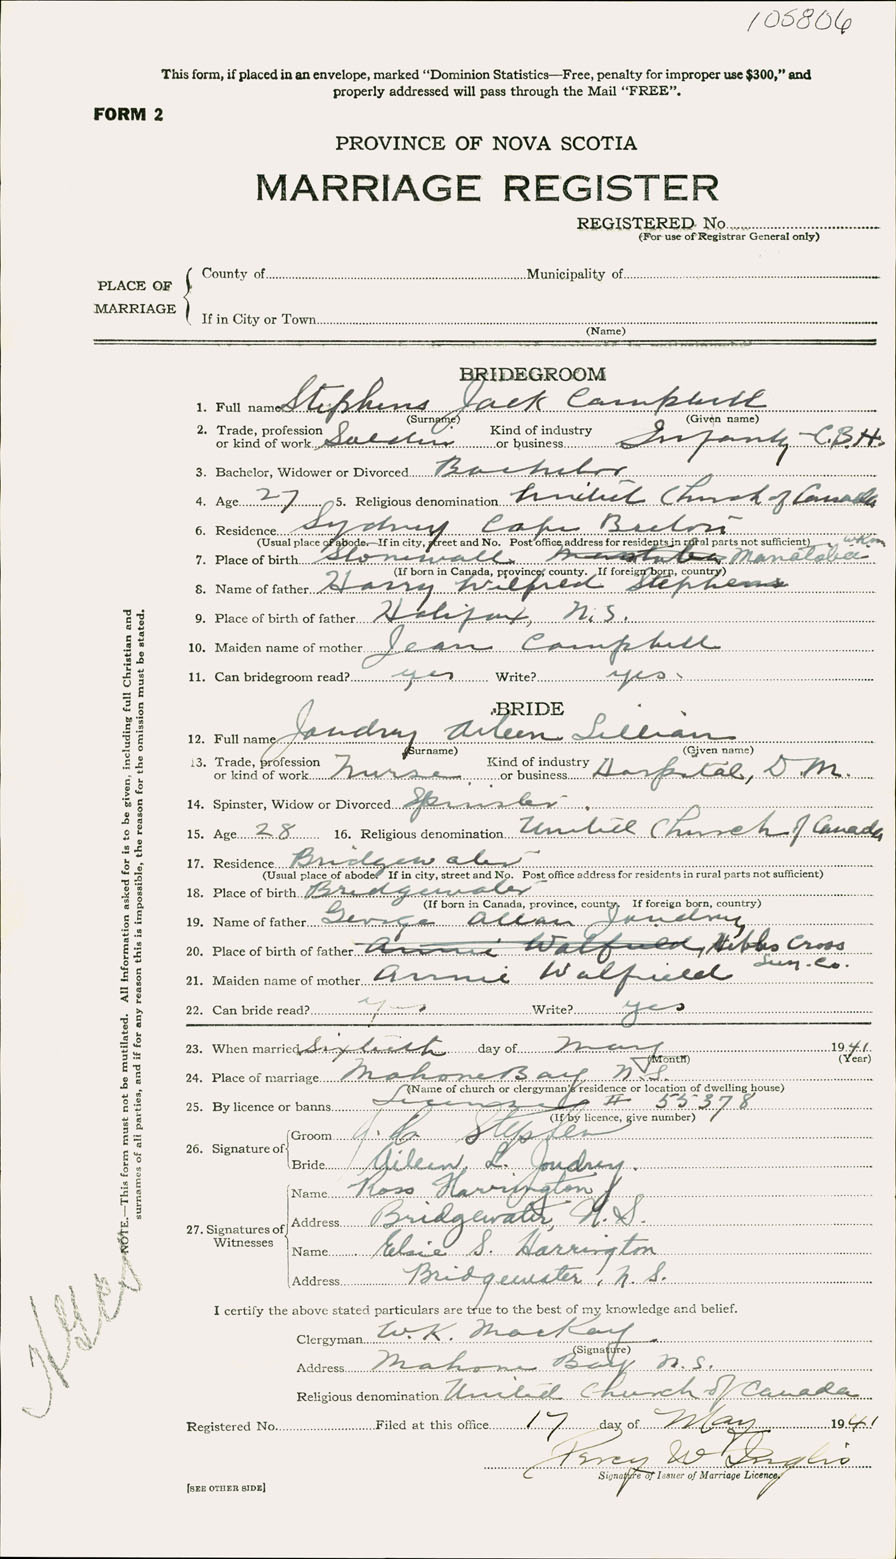 105806
This form, if placed in an envelope, marked "Dominion Statistics—Free, penalty for improper use $300," and
properly addressed will pass through the Mail "FREE".
FORM 2
PROVINCE OF NOVA SCOTIA
MARRIAGE REGISTER
REGISTERED No.
(For use of Registrar General only)
PLACE OF MARRIAGE
County of Municipality of
If in City or Town
(Name)
BRIDEGROOM
1. Full name Stephens Jack Campbell
(Surname) (Given name)
2. Trade, profession or kind of work Soldier Kind of industry or business Infantry C.B.H.
3. Bachelor, Widower or Divorced Bachelor
4. Age 27 5. Religious denomination United Church of Canada
6. Residence Sydney Cape Breton
(Usual place of abode. If in city, street and No. Post office address for residents in rural parts not sufficient)
7. Place of birth Stonewall Manatoba
(If born in Canada, province, county. If foreign born, country)
8. Name of father Harry Wilfred Stephens
9. Place of birth of father Halifax, N.S.
10. Maiden name of mother Jean Campbell
11. Can bridegroom read? yes Write? yes
BRIDE
12. Full name Joudrey Aileen Lillian
(Surname) (Given name)
13. Trade, profession or kind of work Nurse Kind of industry or business Hospital, D.M.
14. Spinster, Widow or Divorced Spinster
15. Age 28 16. Religious denomination United Church of Canada
17. Residence Bridgewater
(Usual place of abode. If in city, street and No. Post office address for residents in rural parts not sufficient)
18. Place of birth Bridgewater
(If born in Canada, province, county. If foreign born, country)
19. Name of father George Allan Joudrey
20. Place of birth of father Annie Walfield, Hibbs Cross
Lun. Co.
21. Maiden name of mother Annie Walfield
22. Can bride read? yes Write? yes
23. When married Sixteenth day of May 1941
(Month) (Year)
24. Place of marriage Mahone Bay N.S.
(Name of church or clergyman's residence or location of dwelling house)
25. By licence or banns License # 55378
(If by licence, give number)
26. Signature of
Groom J. C. Stephen
Bride Aileen L. Joudrey.
27. Signatures of Witnesses
Name Ross Harrington
Address Bridgewater, N.S.
Name Elsie S. Harrington
Address Bridgewater, N.S.
I certify the above stated particulars are true to the best of my knowledge and belief.
Clergyman W.K. MacKay
(Signature)
Address Mahone Bay N.S.
Religious denomination United Church of Canada
Registered No. Filed at this office 17 day of May 1941
Percy W Inglis
Signature of Issuer of Marriage Licence.
[SEE OTHER SIDE]
NOTE.—This form must not be mutilated. All information asked for is to be given, including full Christian and
surnames of all parties, and if for any reason this is impossible, the reason for the omission must be stated.